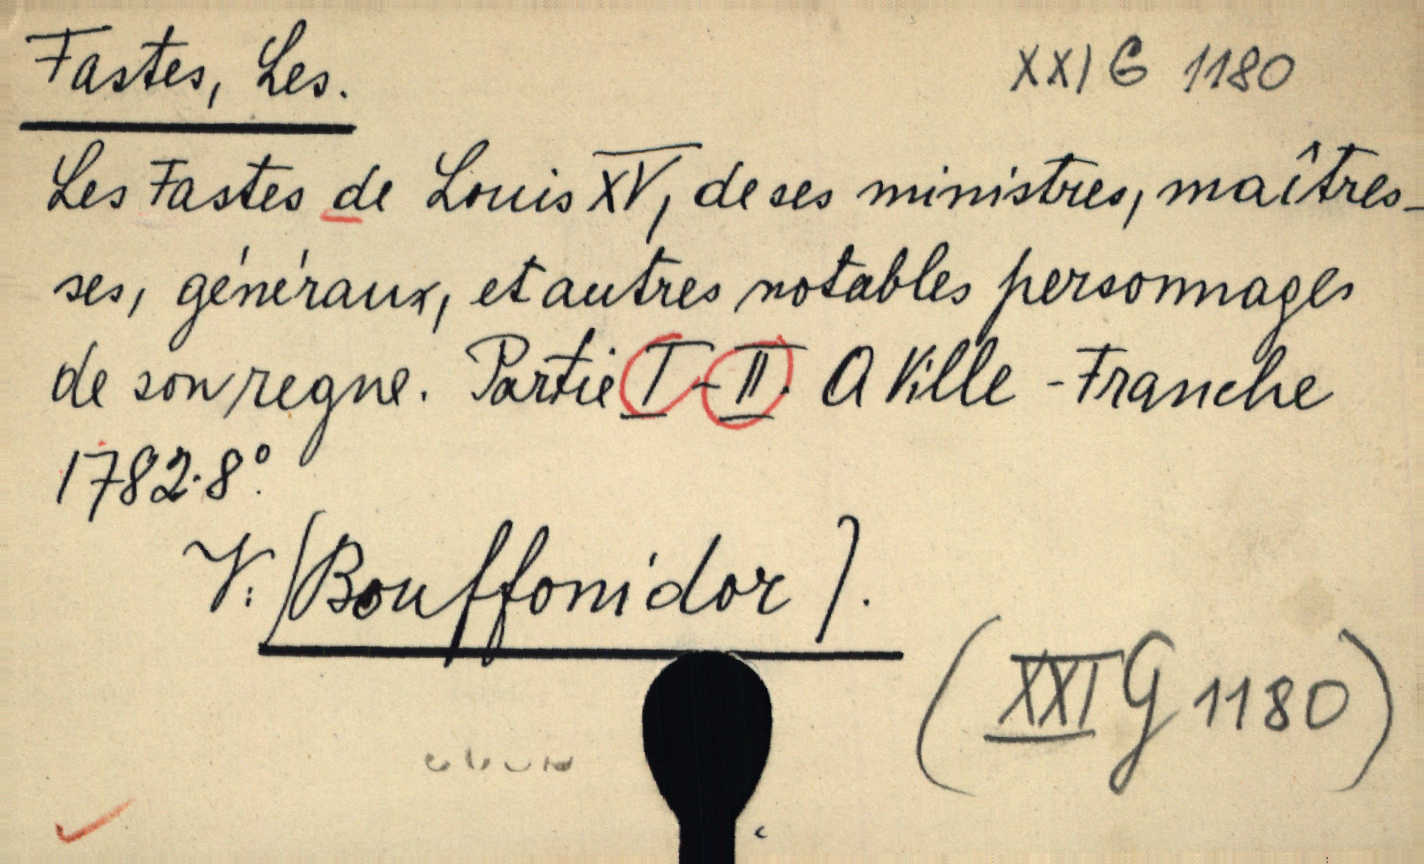 Fastes, Les.
XXI G 1180
Les Fastes de Louis XV, de ses ministres, maîtres-
ses, généraux, et autres notables personnages
de son regne. Partie I-II. A Ville-Franche
1782. 8°.
V. [Bouffonidor].
(XXI G 1180)